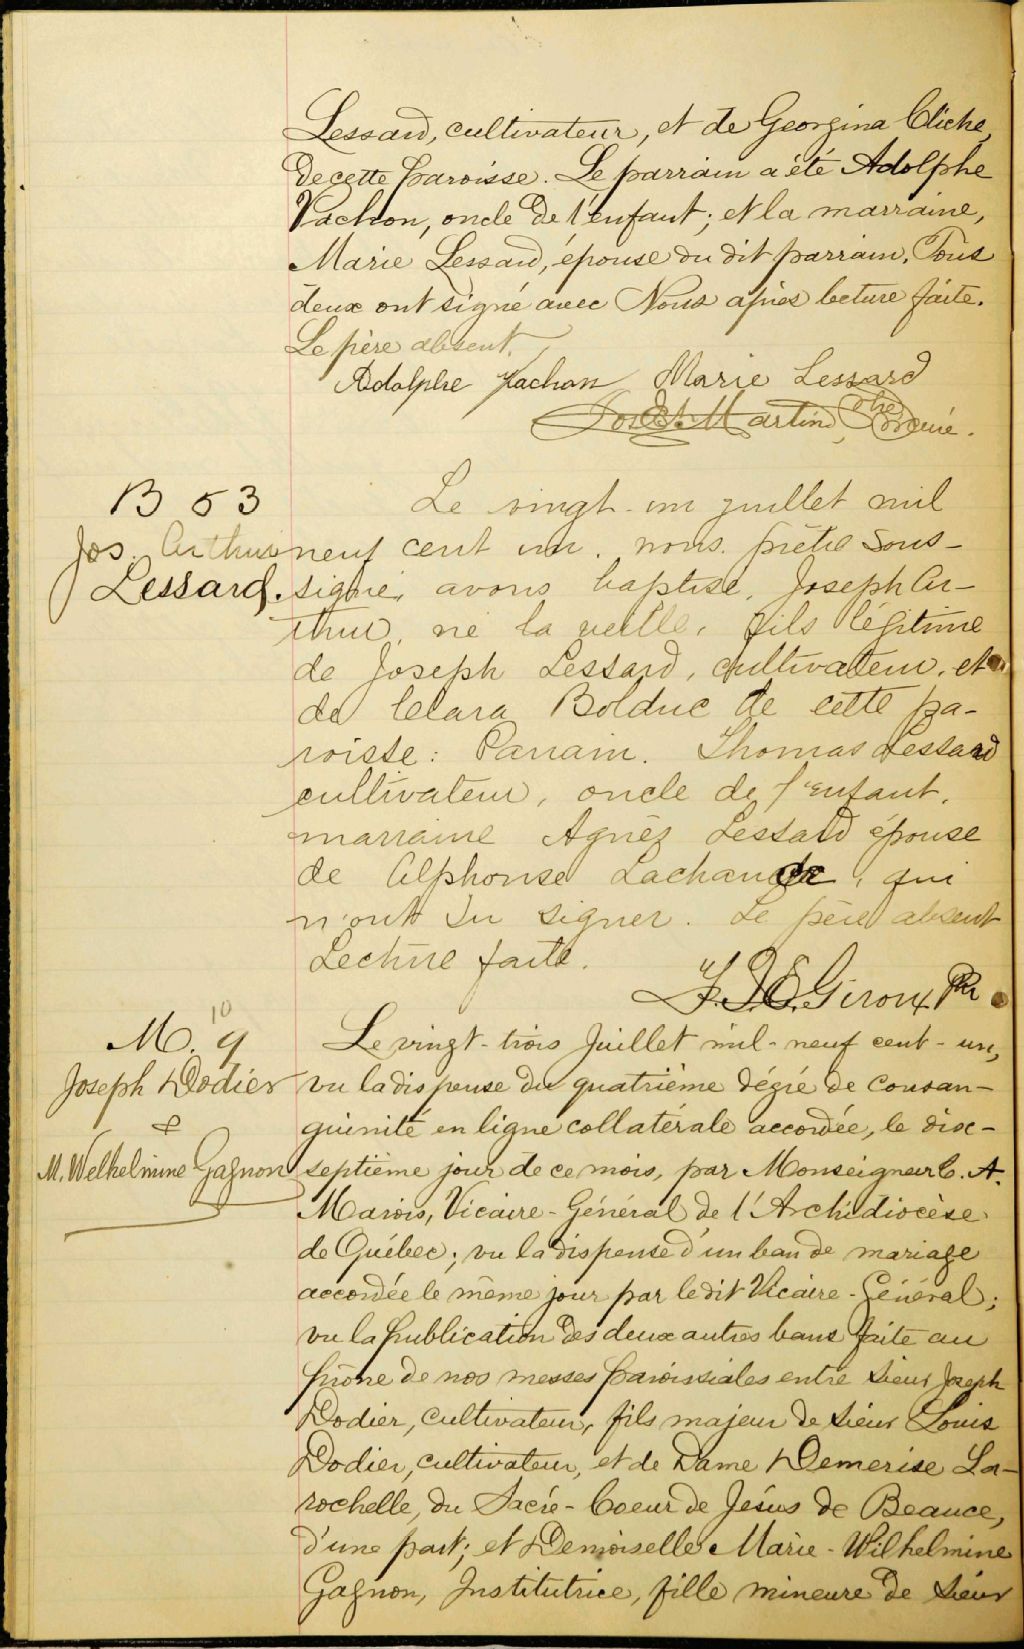 Lessard, cultivateur, et de Georgina Cliche,
de cette paroisse. Le parrain a été Adolphe
Vachon, oncle de l'enfant; et la marraine,
Marie Lessard, épouse du dit parrain. Tous
deux ont signé avec Nous après lecture faite.
Le père absent.
Adolphe Vachon Marie Lessard
Jos. E. Martin, Ptre Curé.
B 53
Jos. Arthur
Lessard.
Le vingt-un juillet mil
neuf cent un, nous prêtre sous-
signé, avons baptisé, Joseph Ar-
thur, né la veille, fils légitime
de Joseph Lessard, cultivateur, et
de Clara Bolduc de cette pa-
roisse: Parrain. Thomas Lessard
cultivateur, oncle de l'enfant,
marraine Agnès Lessard épouse
de Alphonse Lachance, qui
n'ont su signer. Le père absent
Lecture faite.
Giroux Ptr
10
M. 9
Joseph Dodier
&
M. Welhelmine Gagnon
Le vingt-trois Juillet mil-neuf cent-un,
vu la dispense du quatrième dégré de consan-
guinité en ligne collatérale accordée, le dix-
septième jour de ce mois, par Monseigneur C. A.
Marois, Vicaire-Général de l'Archidiocèse
de Québec; vu la dispense d'un ban de mariage
accordée le même jour par le dit Vicaire-Général;
vu la publication des deux autres bans faite au
prône de nos messes paroissiales entre Sieur Joseph
Dodier, cultivateur, fils majeur de Sieur Louis
Dodier, cultivateur, et de Dame Demerise La-
rochelle, du Sacré-Coeur de Jésus de Beauce,
d'une part; et Demoiselle Marie-Wilhelmine
Gagnon, Institutrice, fille mineure de Sieur